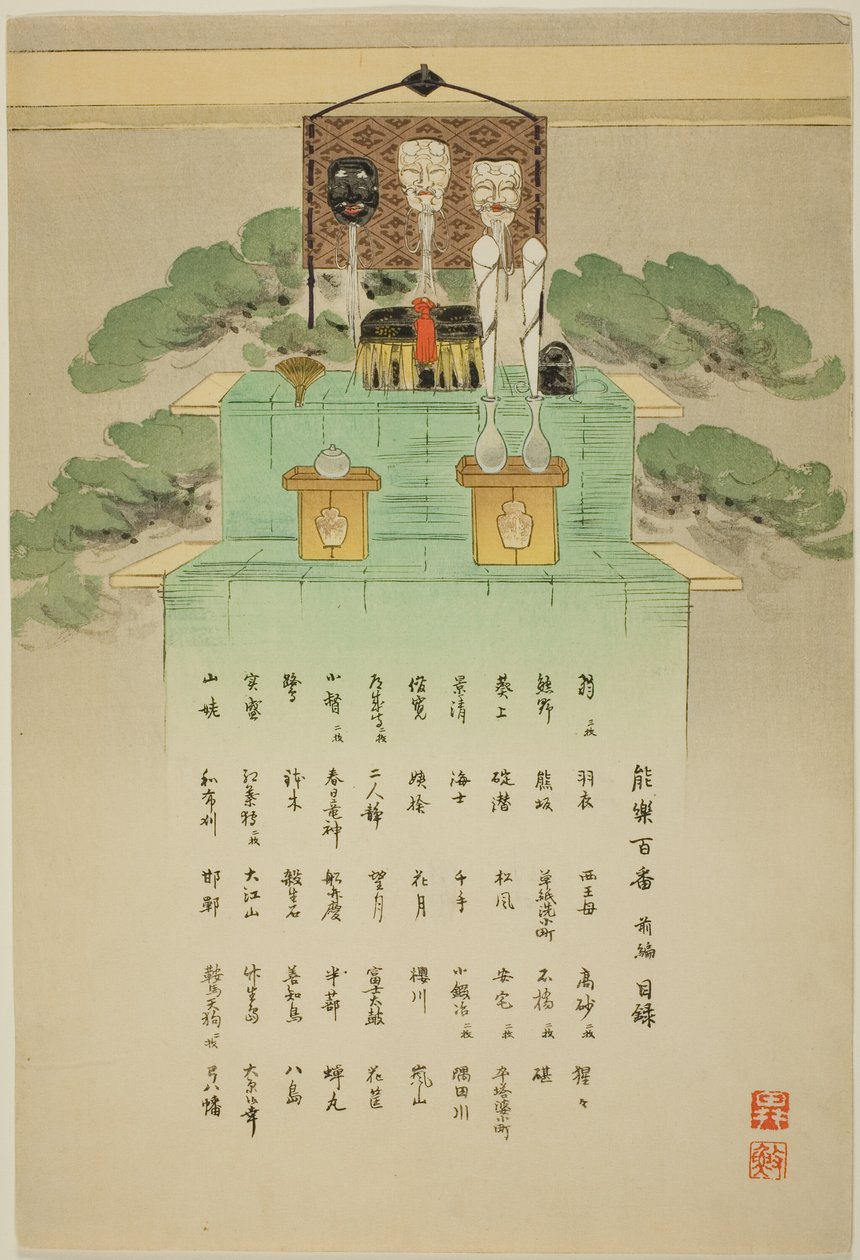 能樂百番 前編 目録
翁 三枚 羽衣 西王母 高砂 二枚 猩々
熊野 熊坂 草紙洗小町 石橋 二枚 碪
葵上 碇潜 松風 安宅 二枚 卒塔婆小町
景清 海士 千手 小鍛冶 二枚 隅田川
俊寛 姨捨 花月 櫻川 嵐山
道成寺 二枚 二人静 望月 富士太鼓 花筐
小督 二枚 春日竜神 船弁慶 半蔀 蝉丸
鷺 鉢木 殺生石 善知鳥 八島
実盛 紅葉狩 二枚 大江山 竹生島 大原御幸
山姥 和布刈 邯鄲 鞍馬天狗 二枚 弓八幡